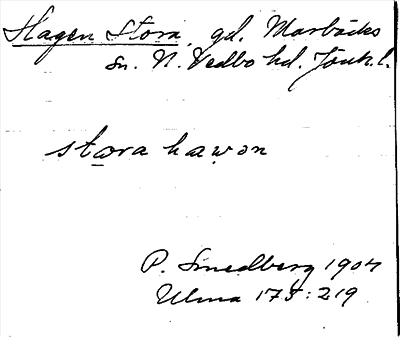 Hagen Stora, gd. Marbäcks
sn. N. Vedbo hd. Jönk. l.
stora hawon
P. Smedberg 1904
Ulma 175:219